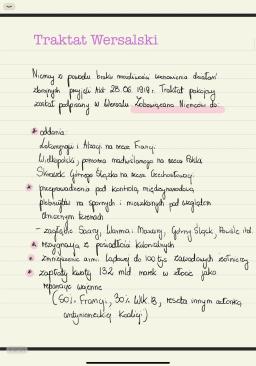 Traktat Wersalski
Niemcy z powodu braku możliwości wznowienia działań
zbrojnych przyjęli 28.06.1919r. Traktat pokojowy
został podpisany w Wersalu. Zobowiązano Niemców do:
oddania:
Lotaryngii i Alzacji na rzecz Francji
Wielkopolski, pomorza nadwiślanego na rzecz Polski
Skrawek Górnego Śląska na rzecz Czechosłowacji
przeprowadzenia pod kontrolą międzynarodową
plebiscytów na spornych i mieszkanych pod względem
etnicznym terenach
- zagłębie Saary, Warmia, Mazury, Górny Śląsk, Powiśle itd.
rezygnacja z posiadłości kolonialnych
zmniejszenie armii lądowej do 100 tyś zawodowych żołnierzy
zapłaty kwoty 132 mld marek w złocie jako
reparacje wojenne
(50% Francji, 30% WlK B, reszta innym członką
antyniemieckiej Koalicji)